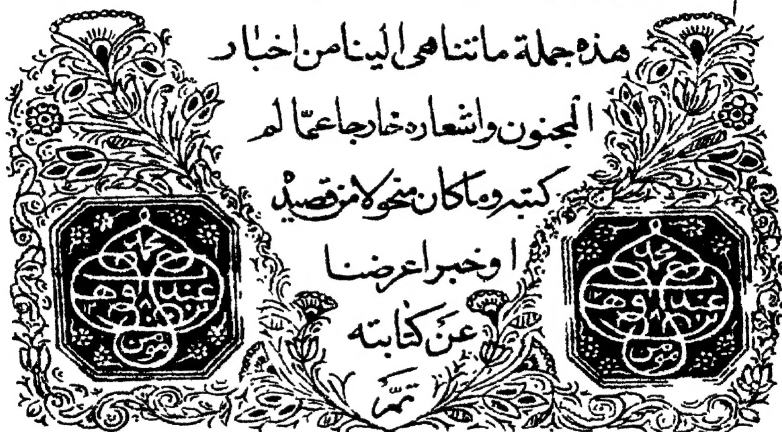 هذه جملة ما تناهى الينا من اخبار
المجنون واشعاره خارجا عمّا لم
كتبه وما كان منحولا من قصيدة
او خبر اعرضنا
عن كتابته
تمّ
محمد
محمد